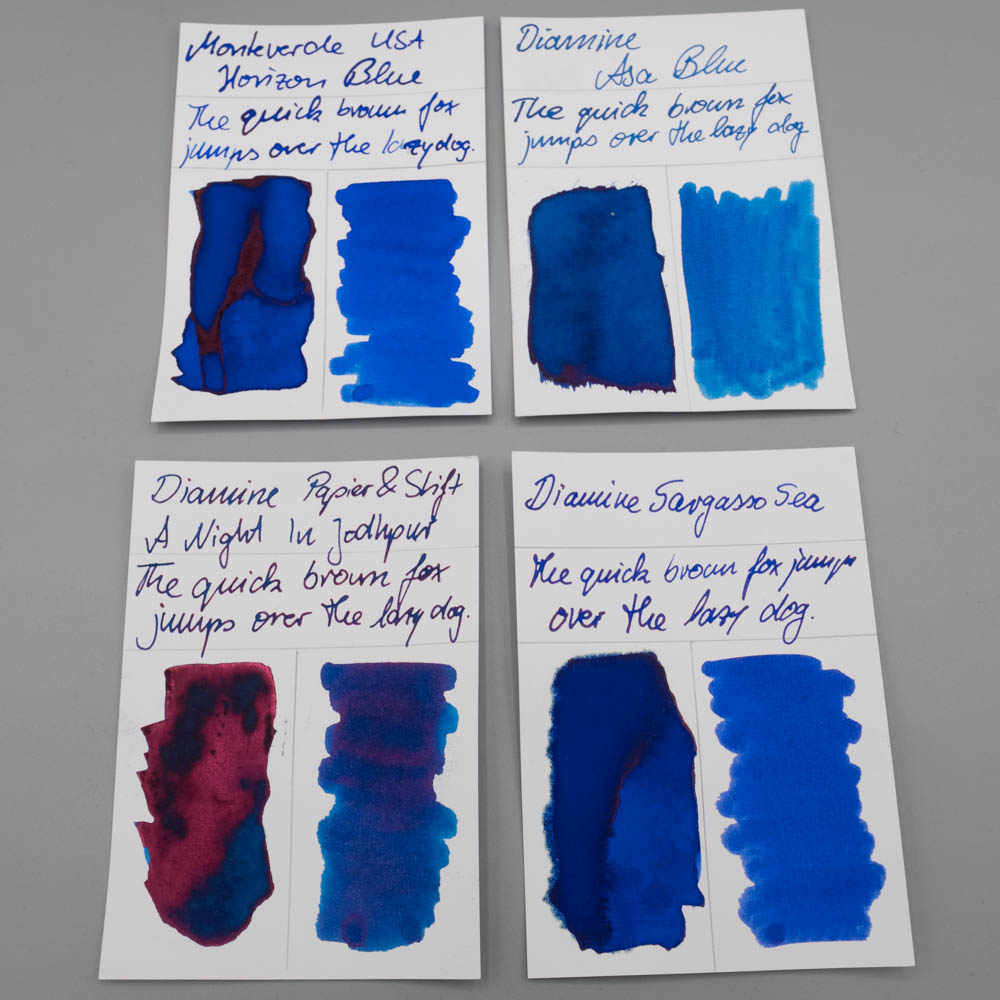 Monteverde USA
Horizon Blue
The quick brown fox
jumps over the lazy dog.
Diamine
Asa Blue
The quick brown fox
jumps over the lazy dog
Diamine Papier & Stift
A Night In Jodhpur
The quick brown fox
jumps over the lazy dog.
Diamine Sargasso Sea
The quick brown fox jumps
over the lazy dog.